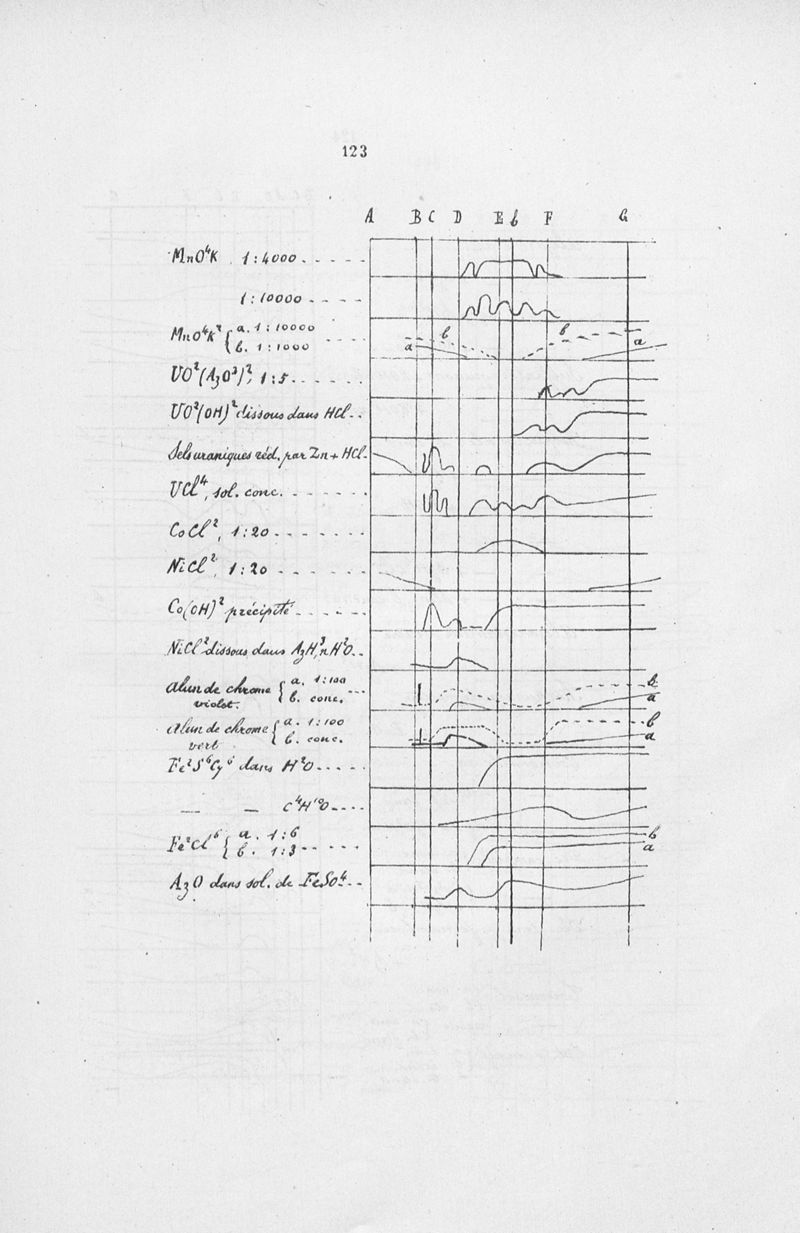 123
A B C D E b F G
MnO⁴K 1:4000
1:10000
MnO⁴K² { a. 1:10000
b. 1:1000
b b
a a
UO²(AzO³)², 1:5
UO²(OH)² dissous dans HCl
Sels uraniques réd. par Zn + HCl
UCl⁴, sol. conc.
CoCl², 1:20
NiCl², 1:20
Co(OH)² précipité
NiCl² dissous dans AzH³, nH²O
Alun de chrome { a. 1:100
violet. b. conc.
b
a
Alun de chrome { a. 1:100
vert b. conc.
b
a
Fe²S⁶Cy⁶ dans H²O
— — C⁴H¹⁰O
Fe²Cl⁶ { a. 1:6
b. 1:3
b
a
AzO dans sol. de FeSO⁴